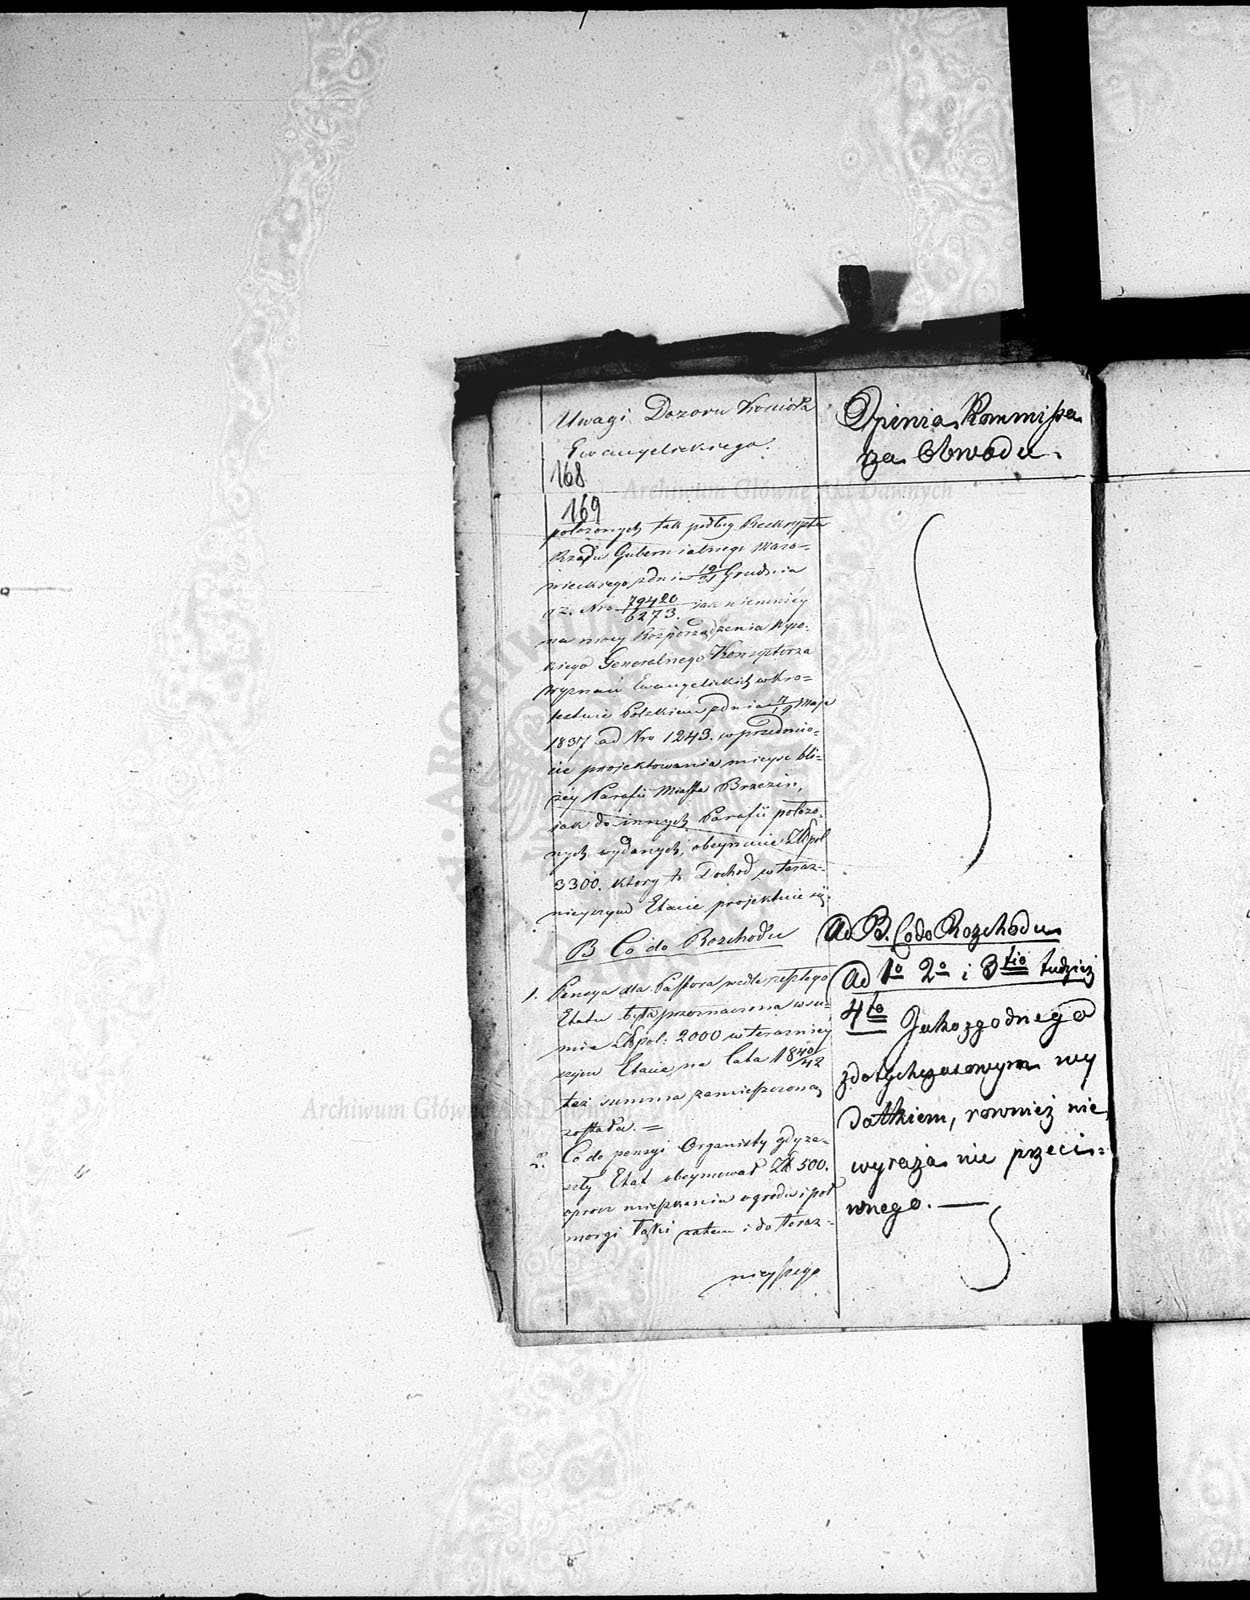 Uwagi Dozoru Kościoła
Ewangelickiego.
168
169
położonych tak podług Reskryptu
Rządu Gubernialnego Mazo-
wieckiego z dnia 19/31 Grudnia
Nro 79420/6273. jak niemniéy
na mocy Rozporządzenia Wyso-
kiego Generalnego Konsystorza
Wyznań Ewangelickich w Kró-
lestwie Polskiem z dnia 7/19 Maja
1837 ad Nro 1243. w przedmio-
cie projektowania mieysc bli-
żéy Parafii Miasta Brzezin,
jak do innych Parafii położo-
nych wydanych, obeymuie Złpol
3300. który to Dochód w teraz-
nieyszym Etacie projektuie się.
B Co do Rozchodu
1. Pensya dla Pastora wedle zeszłego
Etatu była przeznaczona w su-
mie Złpol: 2000 w terazniey
szym Etacie na lata 1840/42
taż summa zamieszczoną
została. =
2. Co do pensyi Organisty gdy ze-
szły Etat obeymował Zł 500.
oprócz mieszkania ogrodu i pół
morgi łąki zatem i do teraz-
nieyszego
Opinia Kommissa
rza Obwodu.
Ad B. Co do Rozchodu
Ad 1o 2o i 3tio tudzież
4to Jako zgodnego
z dotychczasowym wy
datkiem, rownież nie
wyraża nic przeci=
wnego. —
Archiwum Główne Akt Dawnych
Archiwum Główne Akt Dawnych